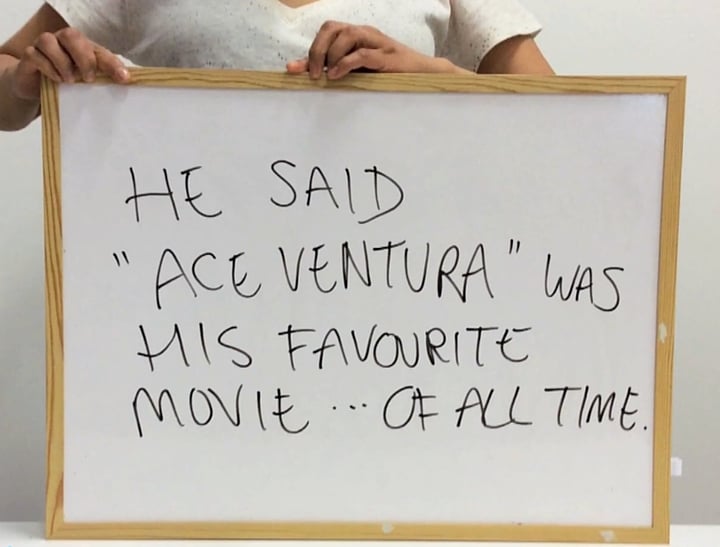 HE SAID
"ACE VENTURA" WAS
HIS FAVOURITE
MOVIE ... OF ALL TIME.